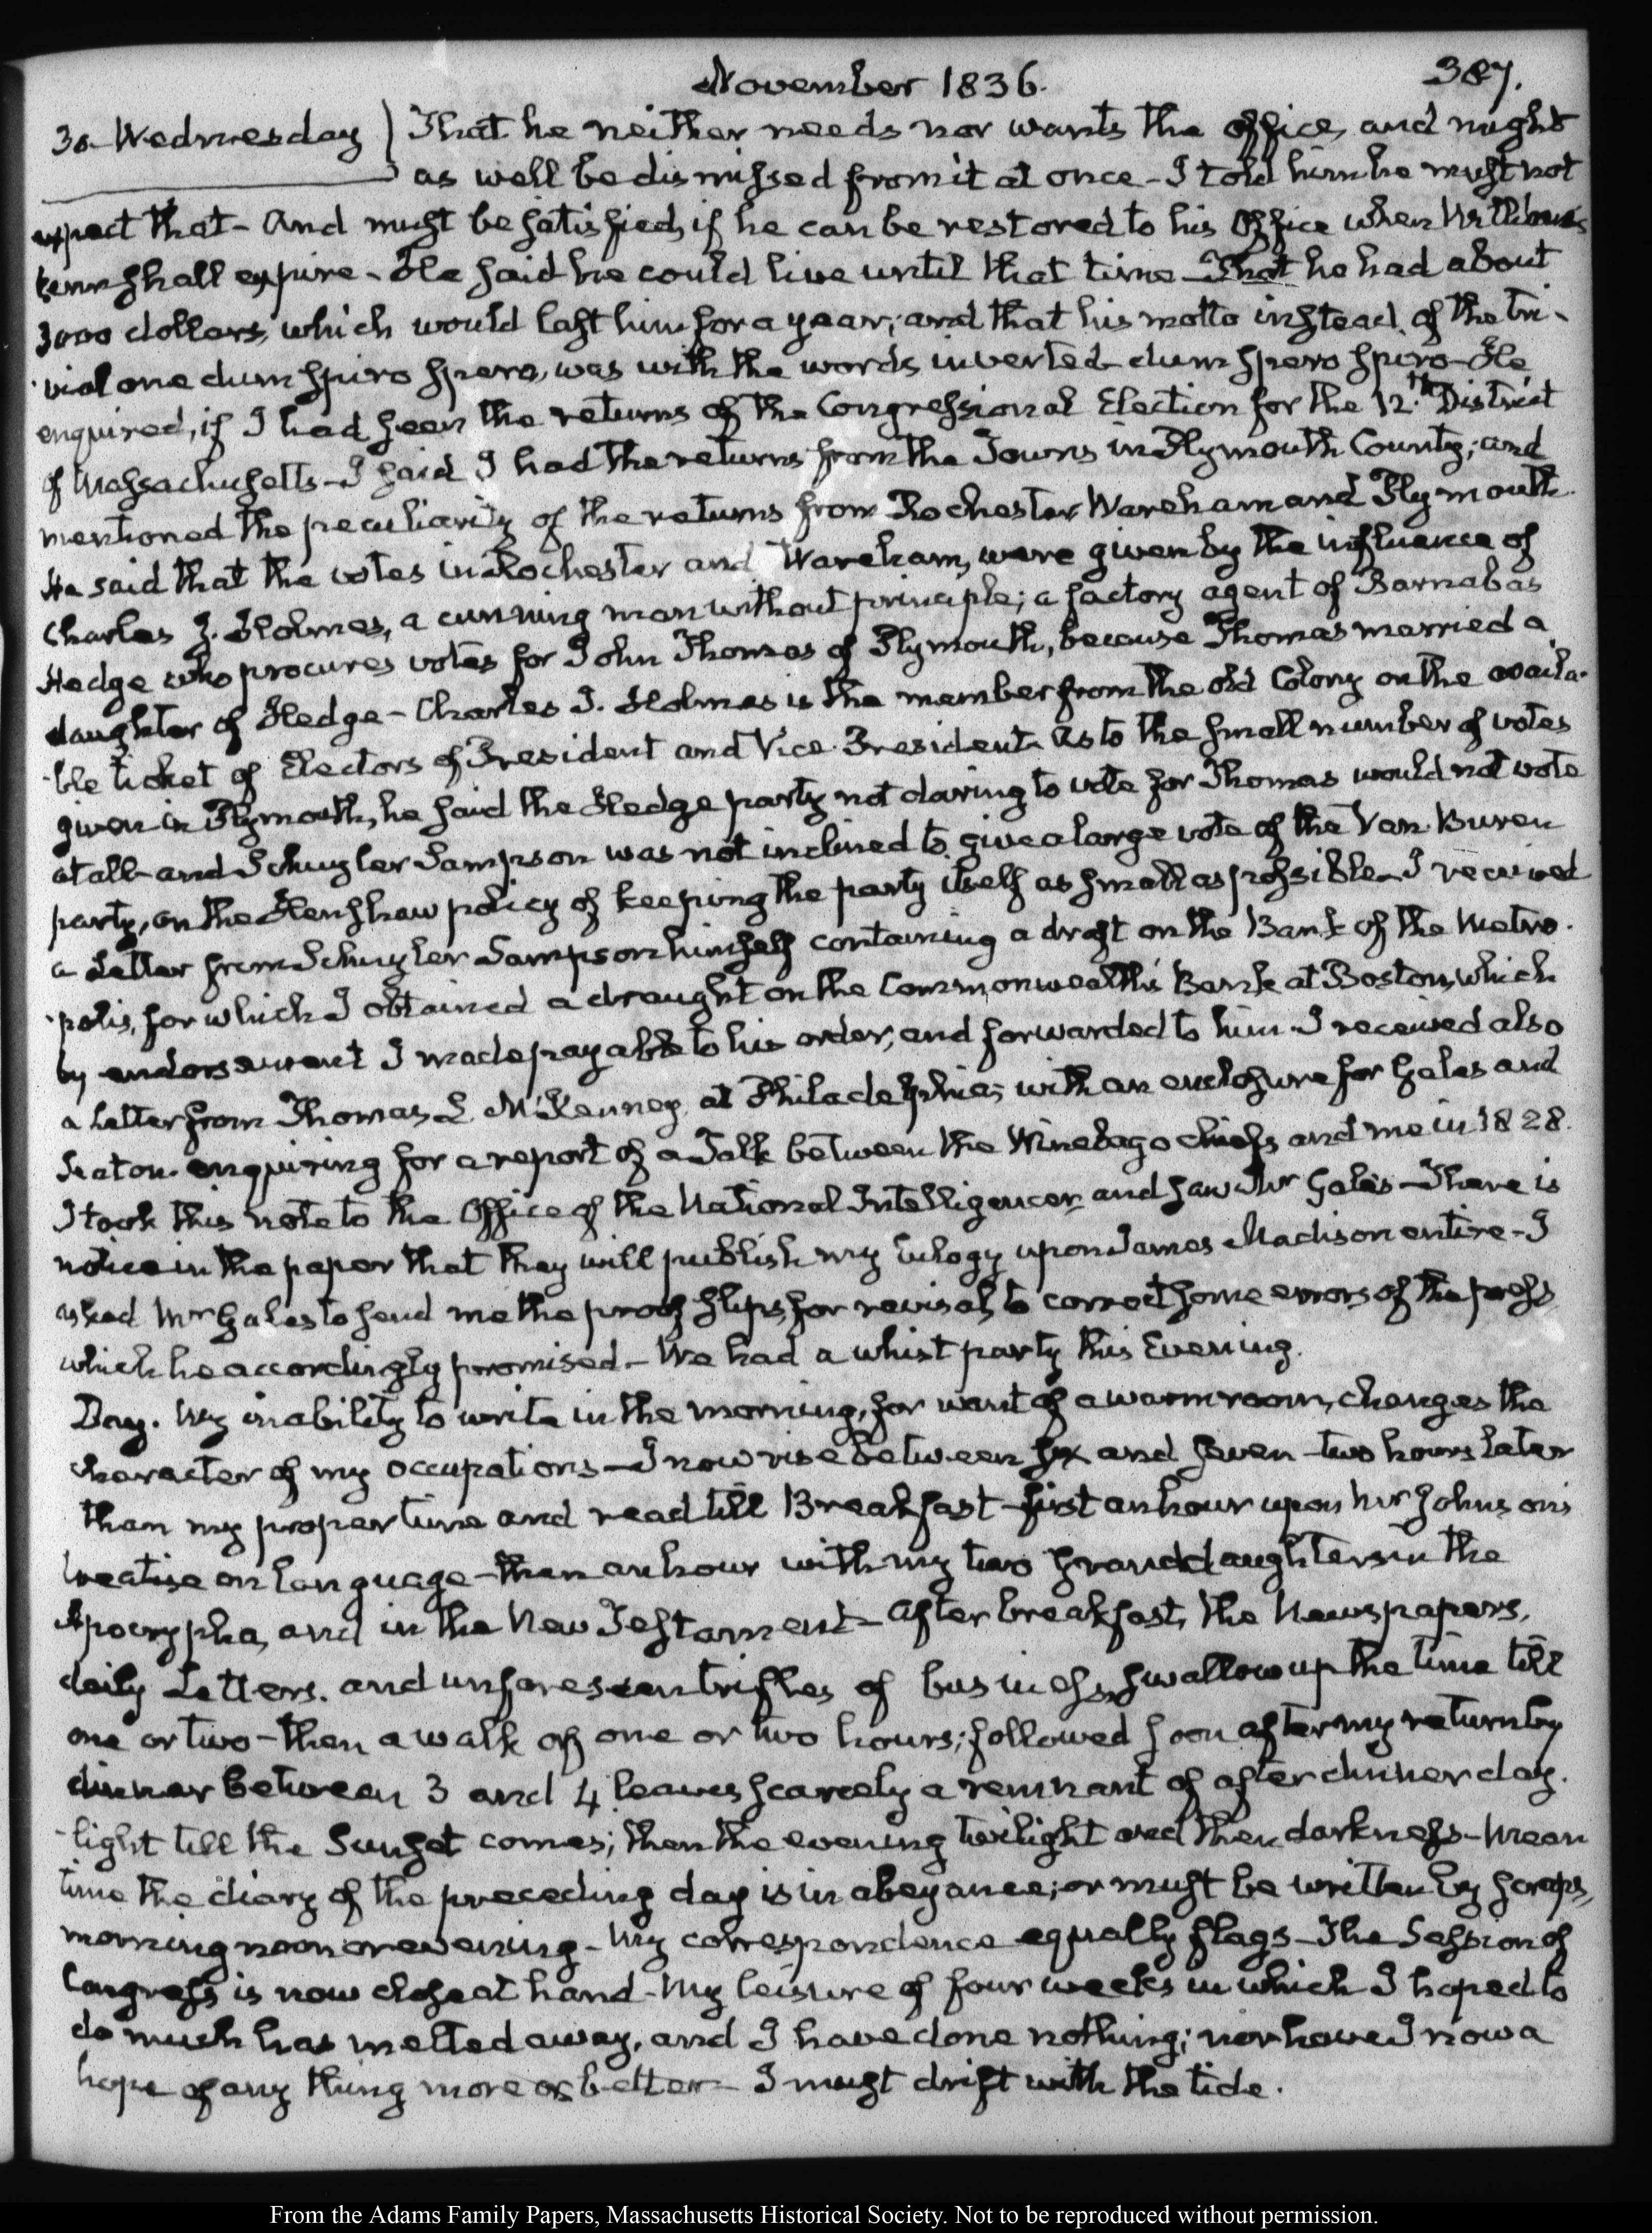 November 1836. 387.
30. Wednesday } That he neither needs nor wants the office, and might
as well be dismissed from it at once - I told him he must not
expect that - And must be satisfied, if he can be restored to his Office when Williams's
term shall expire - He said he could live until that time - That he had about
3000 dollars, which would last him for a year; and that his motto instead of the tri-
-vial one dum spiro spero, was with the words inverted - dum spero spiro - He
enquired, if I had seen the returns of the Congressional Election for the 12.th District
of Massachusetts - I said I had the returns from the Towns in Plymouth County; and
mentioned the peculiarity of the returns from Rochester Wareham and Plymouth.
He said that the votes in Rochester and Wareham, were given by the influence of
Charles J. Holmes, a cunning man without principle; a factory agent of Barnabas
Hedge who procures votes for John Thomas of Plymouth, because Thomas married a
daughter of Hedge - Charles J. Holmes is the member from the old Colony on the availa-
-ble ticket of Electors of President and Vice-President. As to the small number of votes
given in Plymouth, he said the Hedge party not daring to vote for Thomas would not vote
at all - and Schuyler Sampson was not inclined to give a large vote of the Van Buren
party, on the Henshaw policy of keeping the party itself as small as possible - I received
a Letter from Schuyler Sampson himself containing a draft on the Bank of the Metro-
-polis, for which I obtained a draught on the Commonwealth's Bank at Boston, which
by endorsement I made payable to his order, and forwarded to him. I received also
a Letter from Thomas L. McKenney at Philadelphia; with an enclosure for Gales and
Seaton enquiring for a report of a Talk between the Winebago chiefs and me in 1828.
I took this note to the Office of the National Intelligencer and saw Mr Gales - There is
notice in the paper that they will publish my Eulogy upon James Madison entire - I
asked Mr Gales to send me the proof slips, for revisal, to correct some errors of the press
which he accordingly promised - We had a whist party this Evening.
Day. My inability to write in the morning, for want of a warm room, changes the
character of my occupations - I now rise between six and seven - two hours later
than my proper time and read till Breakfast - first an hour upon Mr Johnson's
treatise on language - then an hour with my two Granddaughters in the
Apocrypha, and in the New Testament - After breakfast, the Newspapers,
daily Letters, and unforeseen trifles of business, swallow up the time till
one or two - then a walk of one or two hours; followed soon after my return by
dinner between 3 and 4 leaves scarcely a remnant of after dinner day-
-light till the Sunset comes; then the evening twilight and then darkness - Mean
time the diary of the preceding day is in abeyance; or must be written by scraps,
morning noon or evening - My correspondence equally flags - The Session of
Congress is now close at hand - My leisure of four weeks in which I hoped to
do much has melted away, and I have done nothing; nor have I now a
hope of any thing more or better - I must drift with the tide.
From the Adams Family Papers, Massachusetts Historical Society. Not to be reproduced without permission.